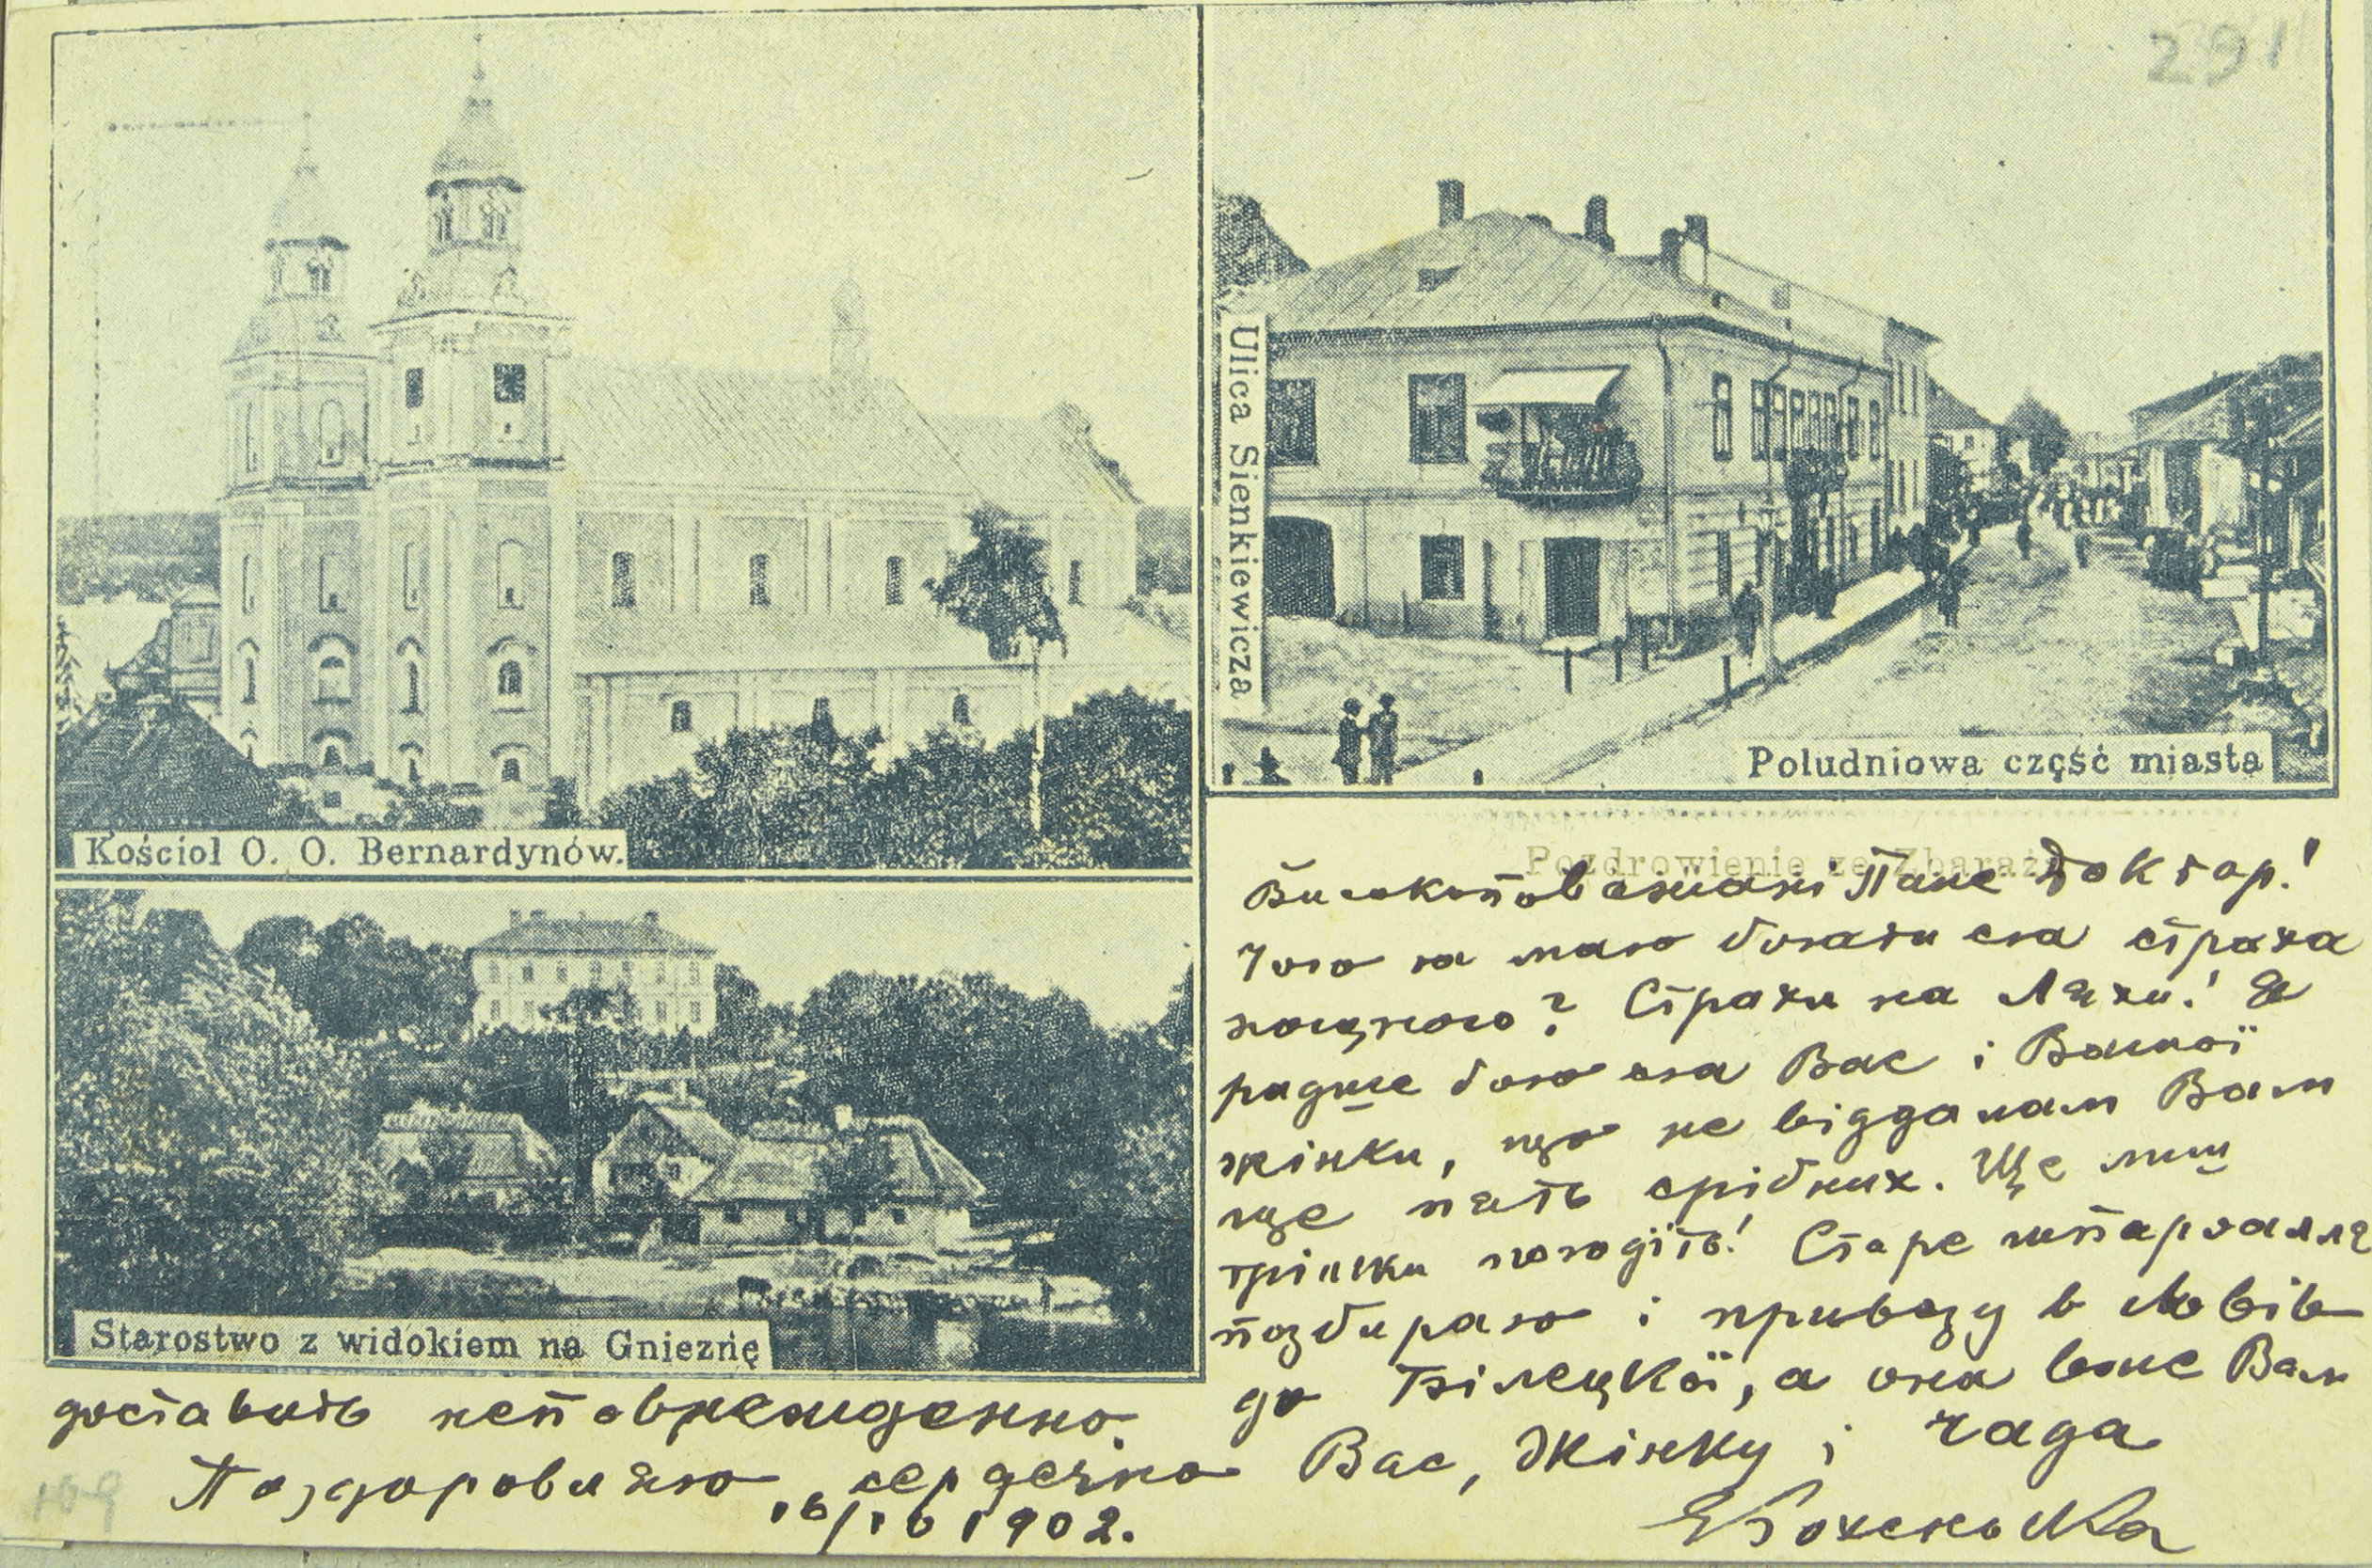 291
Ulica Sienkiewicza
Poludniowa część miasta
Kościol O. O. Bernardynów.
Starostwo z widokiem na Gnieznę
Pozdrowienie ze Zbaraża
Високоповажани Пане Доктор!
Чого я маю боятися страха
нощного? Страхи на Ляхи! Я
радше боюся Вас і Вашої
жінки, що не віддалам Вам
ще пять срібних. Ще лиш
трішки погодіть! Старе шпаргалля
позбираю і привезу в Львів
до Білецкої, а она вже Вам
доставить неповрежденно.
Поздоровляю сердечно Вас, Жінку і чада
16/10 1902.
109